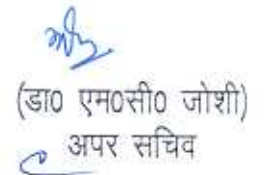 (डा० एम०सी० जोशी)
अपर सचिव